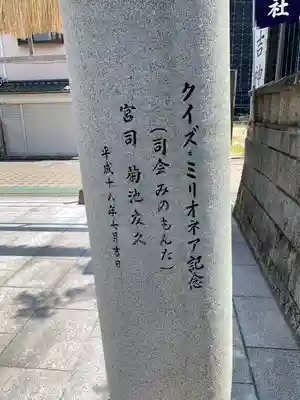 クイズ・ミリオネア記念
(司会みのもんた)
宮司 菊池友久
平成十八年七月吉日
社
吉神